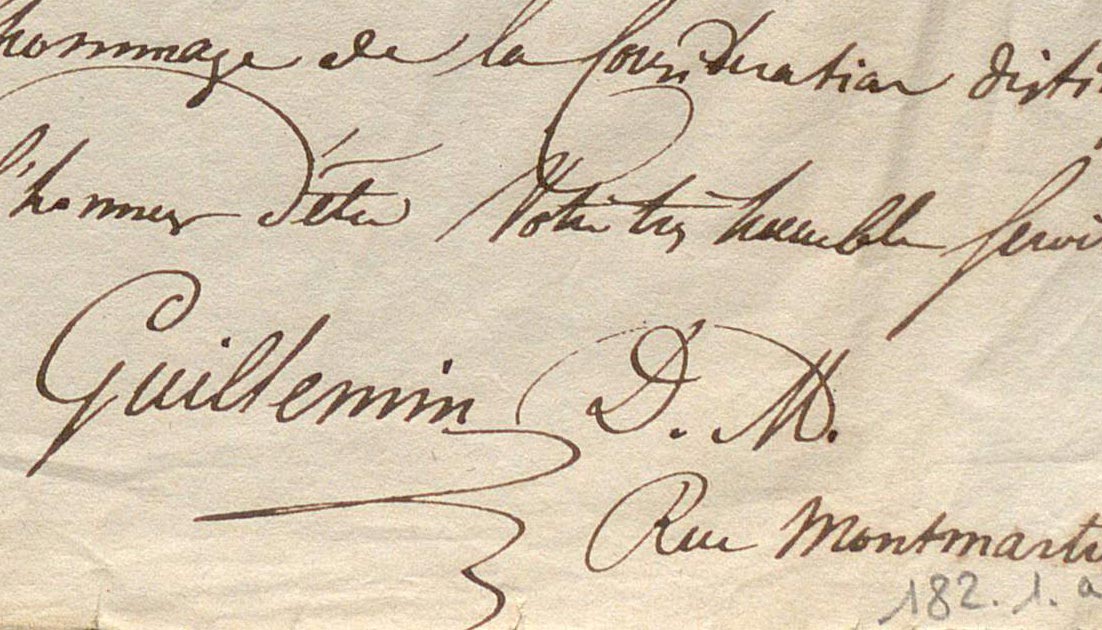 hommage de la Considération disti
l'honneur d'être Votre très humble servi
Guillemin D. M.
Rue Montmartr
182.1.a